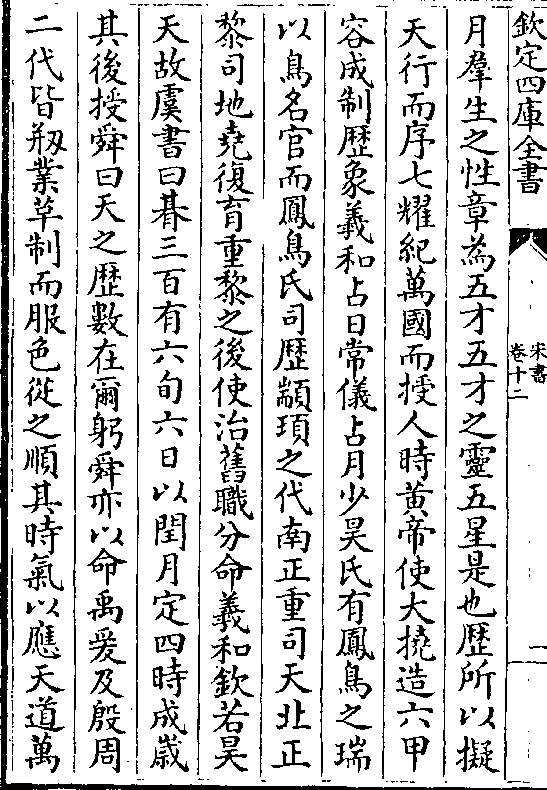 欽定四庫全書
宋書
卷十二
一
月羣生之性章為五才五才之靈五星是也歴所以擬
天行而序七耀紀萬國而授人時黄帝使大撓造六甲
容成制歴象羲和占日常儀占月少昊氏有鳳鳥之瑞
以鳥名官而鳳鳥氏司歴顓頊之代南正重司天北正
黎司地堯復育重黎之後使治舊職分命羲和欽若昊
天故虞書曰朞三百有六旬六日以閏月定四時成歳
其後授舜曰天之歴數在爾躬舜亦以命禹爰及殷周
二代皆剏業草制而服色從之順其時氣以應天道萬